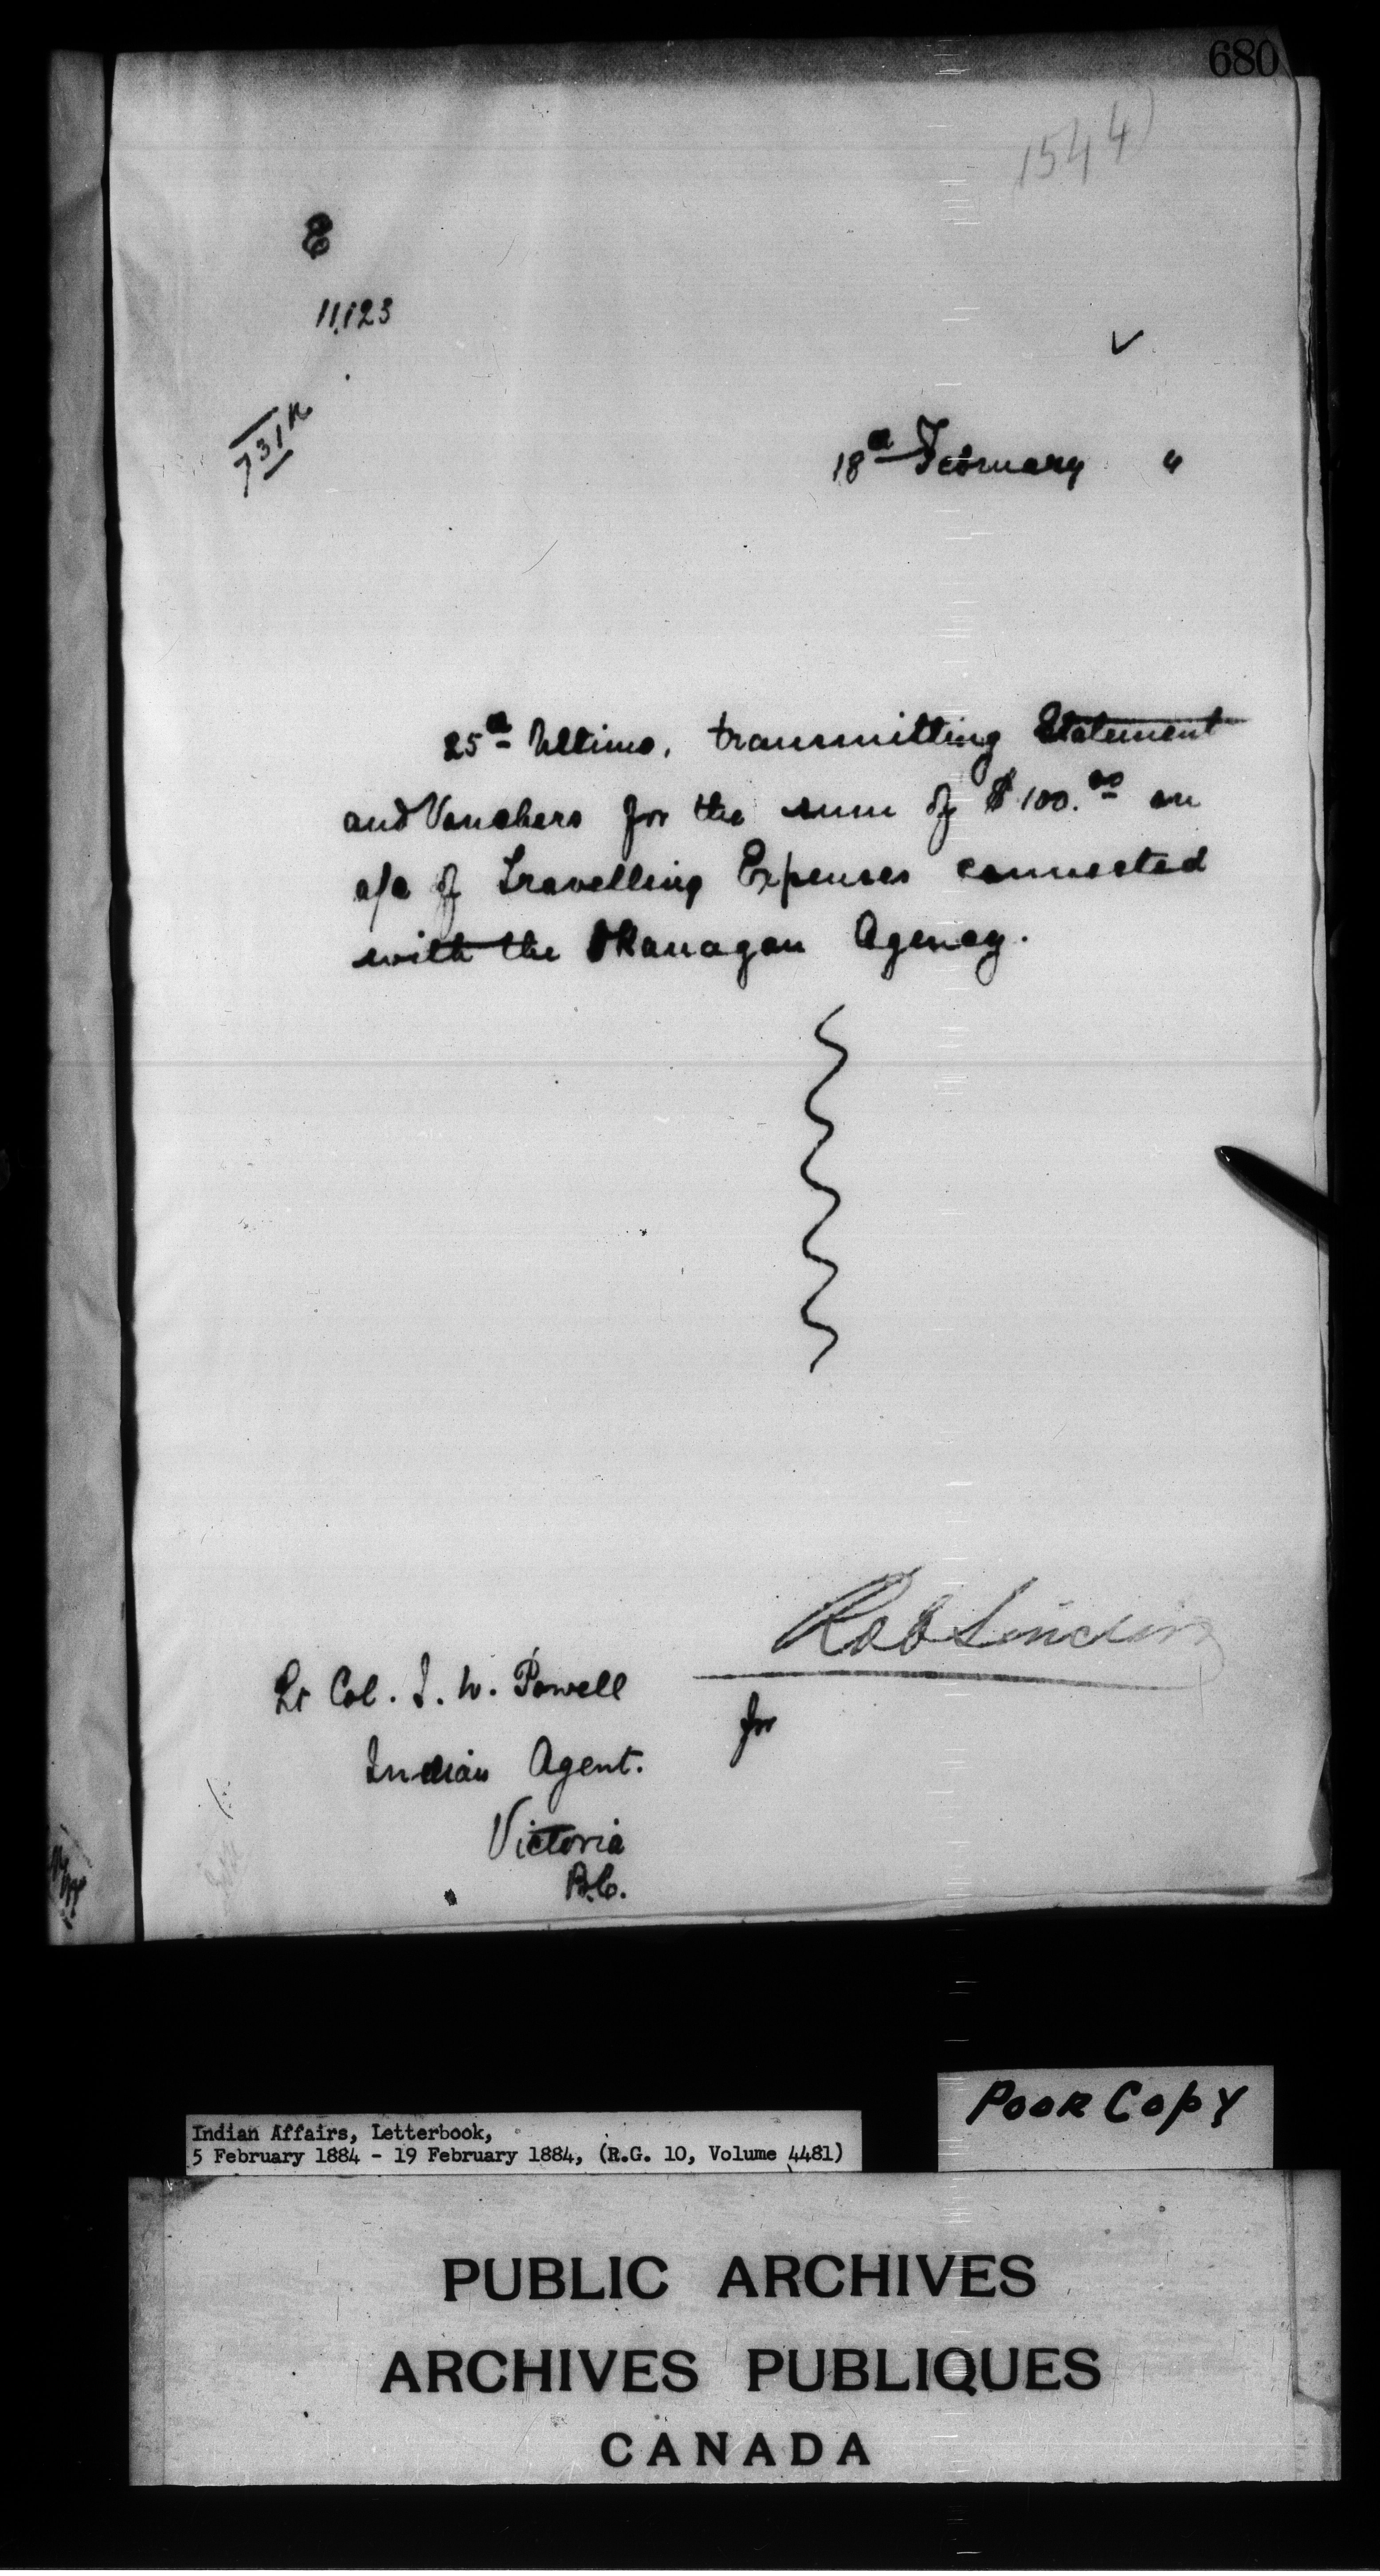 680
1544)
E
11,123
731
18th February "
25th Ultimo, transmitting Statement
and Vouchers for the sum of $100.00 on
a/c of Travelling Expenses connected
with the Okanagan Agency.
Rob Sinclair
Lt Col. I. W. Powell
for
Indian Agent.
Victoria
B.C.
POOR COPY
Indian Affairs, Letterbook,
5 February 1884 - 19 February 1884, (R.G. 10, Volume 4481)
PUBLIC ARCHIVES
ARCHIVES PUBLIQUES
CANADA